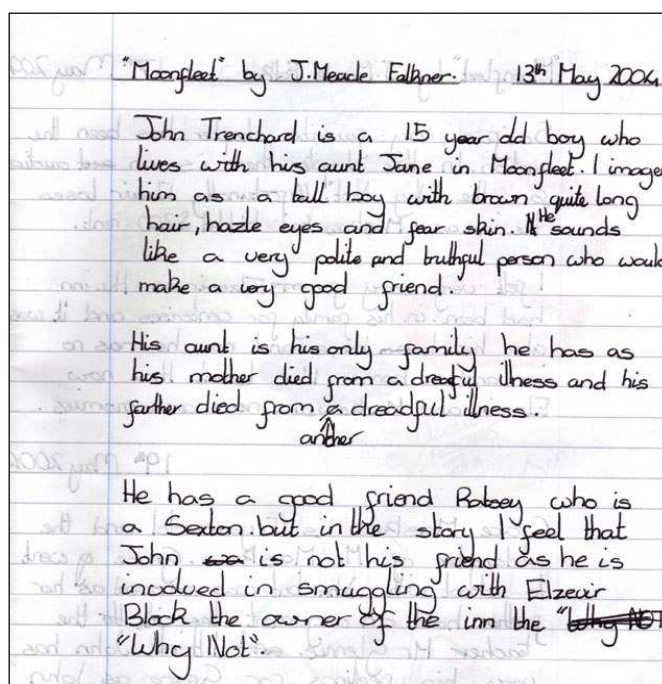 "Moonfleet" by J.Meade Falkner. 13th May 2004
John Trenchard is a 15 year old boy who
lives with his aunt Jane in Moonfleet. I imager
him as a tall boy with brown quite long
hair, hazle eyes and fear skin. He sounds
like a very polite and truthful person who would
make a very good friend.
His aunt is his only family he has as
his mother died from a dreadful illness and his
farther died from a dreadful illness.
another
He has a good friend Ratsey who is
a Sexton but in the story I feel that
John is not his friend as he is
involved in smuggling with Elzevir
Block the owner of the inn the "Why NOT
"Why Not".